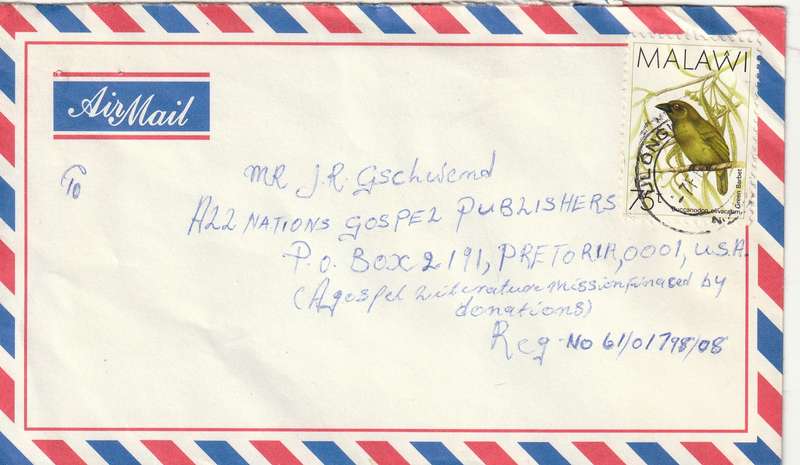 Air Mail
MALAWI
75t
Green Barbet
Buccanodon olivaceum
To
MR J.R. Gschwend
ALL NATIONS GOSPEL PUBLISHERS
P.O. BOX 2191, PRETORIA, 0001, U.S.A.
(A gospel literature mission finaced by
donations)
Reg No 61/01798/08